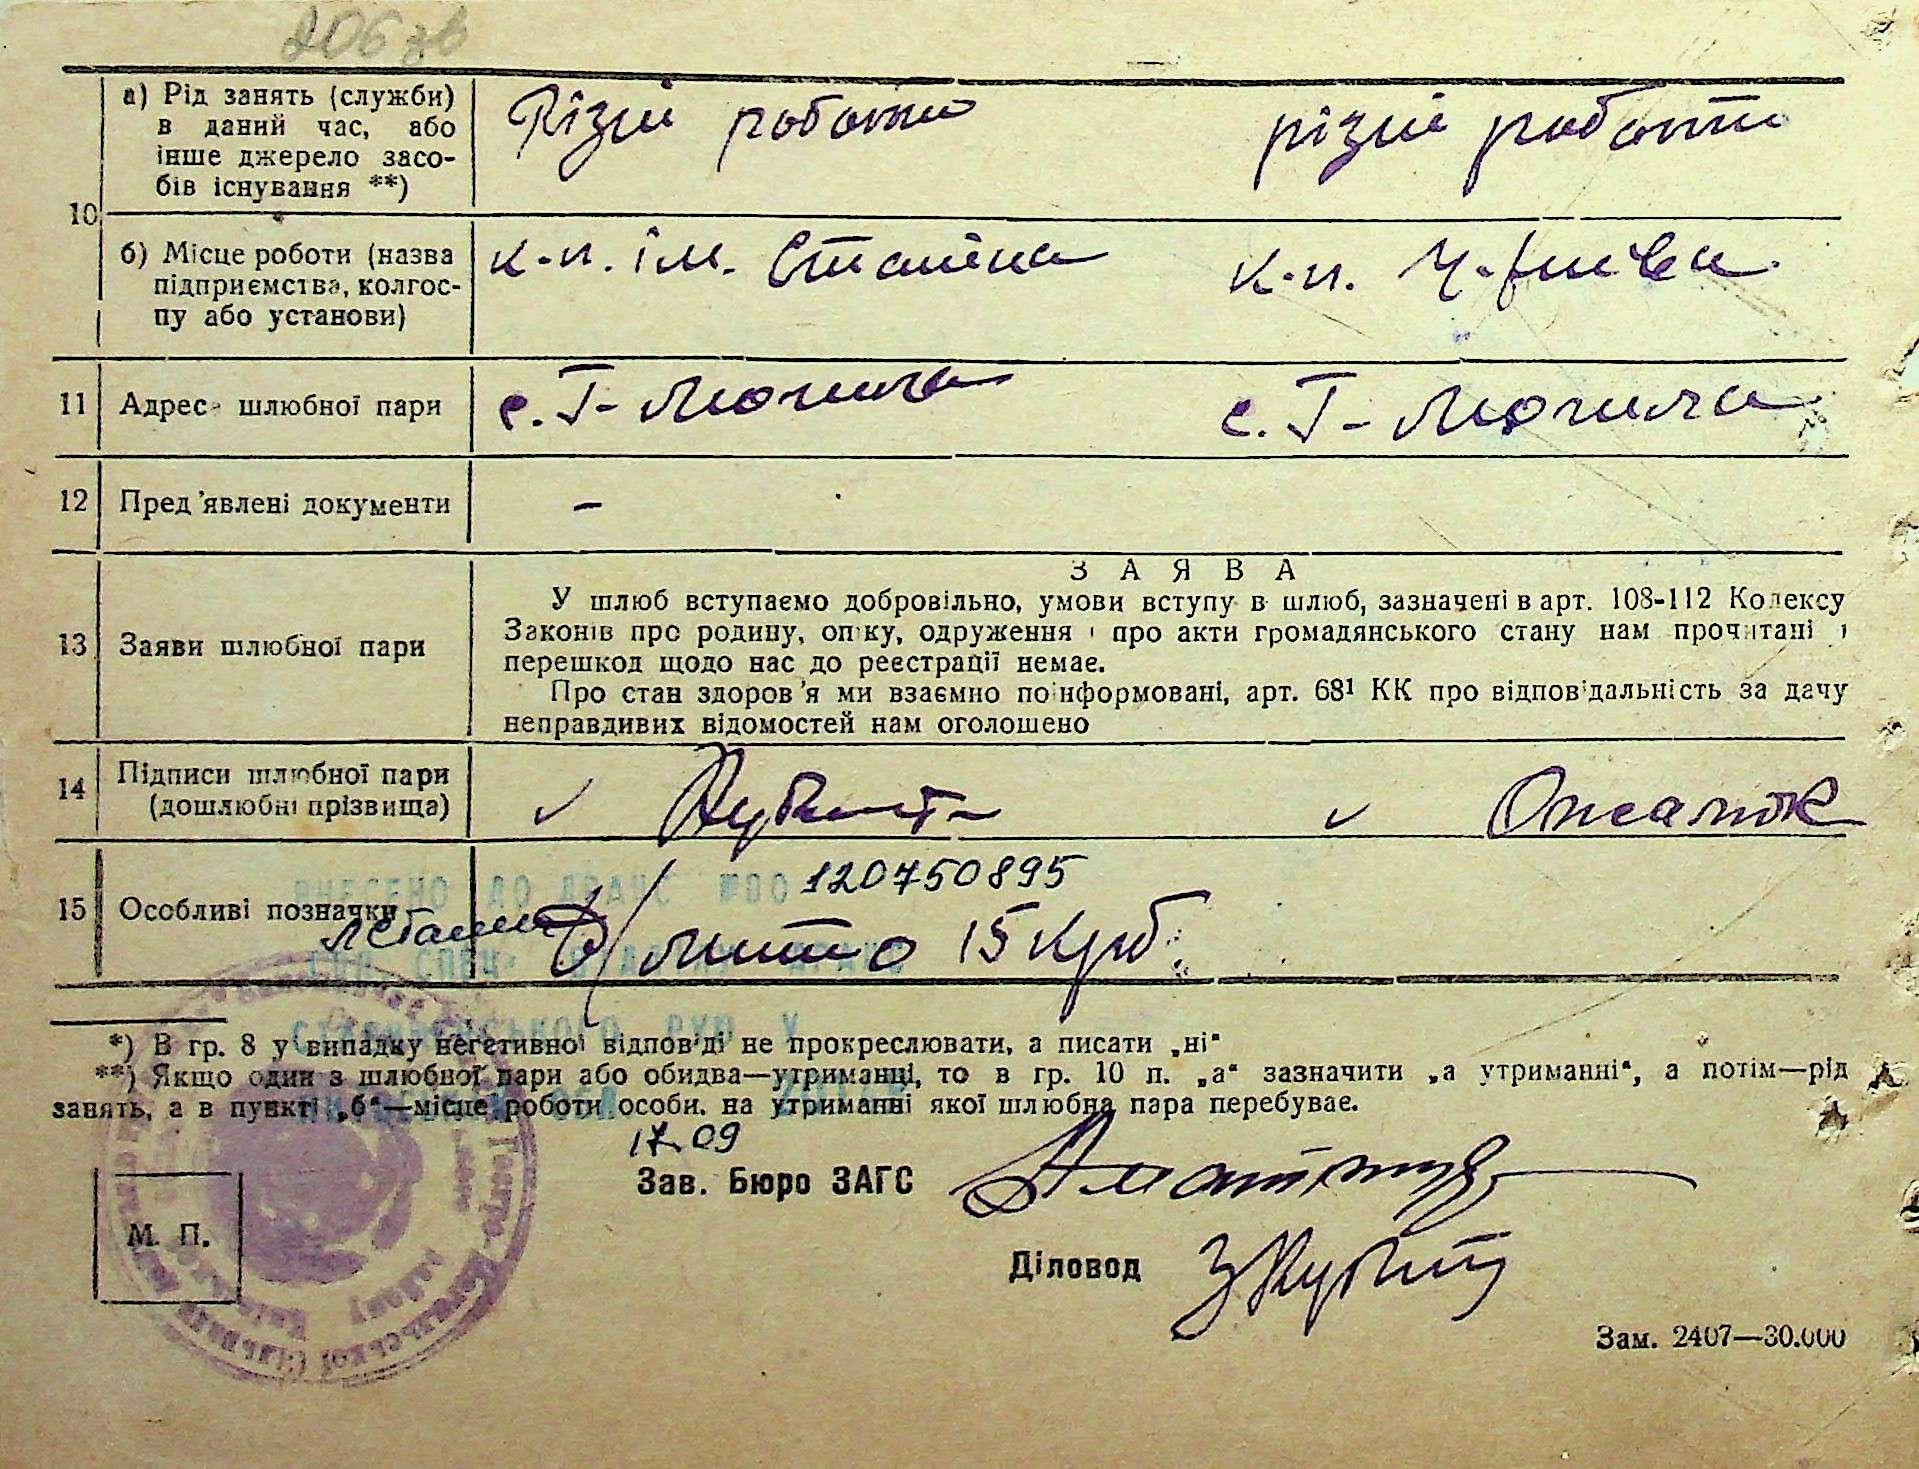 206 зв
а) Рід занять (служби) в даний час, або інше джерело засобів існування **)
Різні роботи
різні роботи
10
б) Місце роботи (назва підприємства, колгоспу або установи)
к-п. ім. Сталіна
к-п.
11 Адрес шлюбної пари
с. Г-Могила
с. Г-Могила
12 Пред'явлені документи
–
ЗАЯВА
13 Заяви шлюбної пари
У шлюб вступаємо добровільно, умови вступу в шлюб, зазначені в арт. 108-112 Кодексу
Законів про родину, опіку, одруження і про акти громадянського стану нам прочитані і
перешкод щодо нас до реєстрації немає.
Про стан здоров'я ми взаємно поінформовані, арт. 68¹ КК про відповідальність за дачу
неправдивих відомостей нам оголошено
14 Підписи шлюбної пари (дошлюбні прізвища)
120750895
ВНЕСЕНО ДО ДРАЦС
15 Особливі позначки
мито 15 крб.
*) В гр. 8 у випадку негативної відповіді не прокреслювати, а писати „ні“
**) Якщо один з шлюбної пари або обидва—утриманці, то в гр. 10 п. „а“ зазначити „а утриманні“, а потім—рід
занять, а в пункті „б“—місце роботи особи. на утриманні якої шлюбна пара перебуває.
17.09
Зав. Бюро ЗАГС
М. П.
Діловод
Зам. 2407—30.000